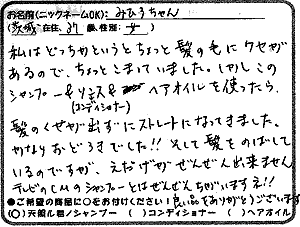 お名前(ニックネームOK): みひろちゃん
(茨城)在住、37歳、性別(女)
私はどっちかというとちょっと髪の毛にクセが
あるので、ちょっとこまっていました。しかしこの
シャンプー&リンス&ヘアオイルを使ったら、
(コンディショナー)
髪のくせが出ずにストレートになってきました。
かなりおどろきでした!!そして髪をのばして
いるのですが、えだげがぜんぜん出来ません
テレビのCMのシャンプーとはぜんぜんちがいますネ!!
●ご希望の商品に○をお付けください!良い品をありがとうございます
(○)天使ル君ノシャンプー ( )コンディショナー ( )ヘアオイル